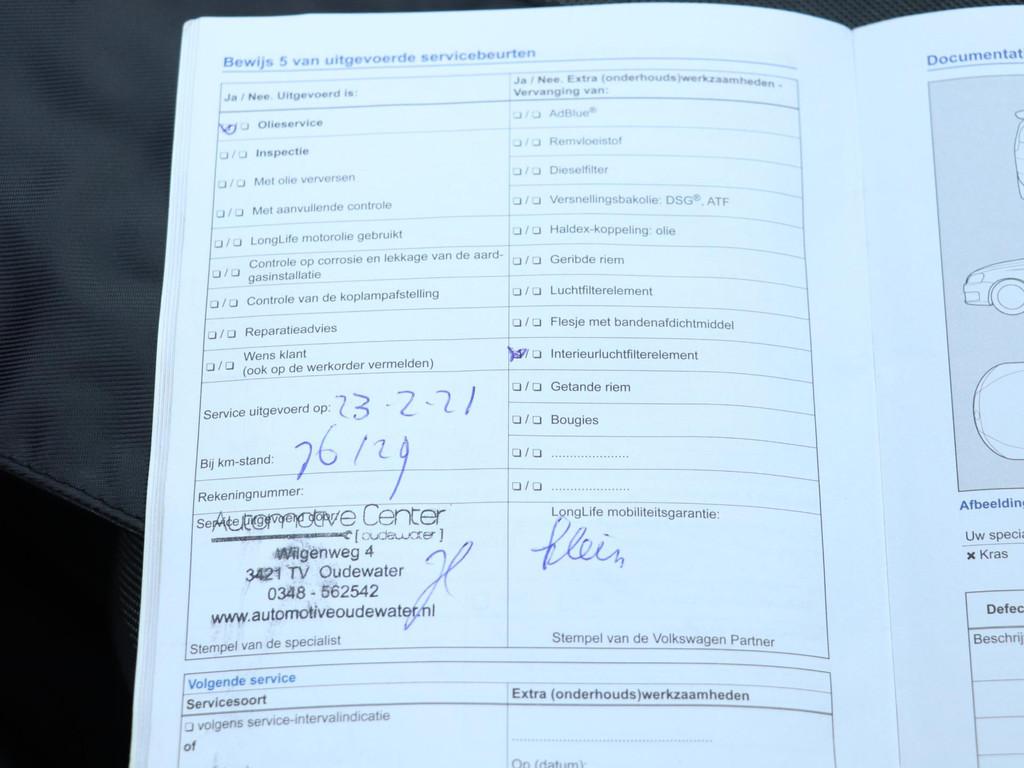 Bewijs 5 van uitgevoerde servicebeurten
Ja / Nee. Uitgevoerd is:
☐ Olieservice
☐ / ☐ Inspectie
☐ / ☐ Met olie verversen
☐ / ☐ Met aanvullende controle
☐ / ☐ LongLife motorolie gebruikt
☐ / ☐ Controle op corrosie en lekkage van de aard-
gasinstallatie
☐ / ☐ Controle van de koplampafstelling
☐ / ☐ Reparatieadvies
☐ / ☐ Wens klant
(ook op de werkorder vermelden)
Service uitgevoerd op: 23-2-21
Bij km-stand: 76129
Rekeningnummer:
Service uitgevoerd door:
Automotive Center
[oudewater]
Wilgenweg 4
3421 TV Oudewater
0348 - 562542
www.automotiveoudewater.nl
Stempel van de specialist
Ja / Nee. Extra (onderhouds)werkzaamheden -
Vervanging van:
☐ / ☐ AdBlue®
☐ / ☐ Remvloeistof
☐ / ☐ Dieselfilter
☐ / ☐ Versnellingsbakolie: DSG®, ATF
☐ / ☐ Haldex-koppeling: olie
☐ / ☐ Geribde riem
☐ / ☐ Luchtfilterelement
☐ / ☐ Flesje met bandenafdichtmiddel
/ ☐ Interieurluchtfilterelement
☐ / ☐ Getande riem
☐ / ☐ Bougies
☐ / ☐ .....................
☐ / ☐ .....................
LongLife mobiliteitsgarantie:
klein
Stempel van de Volkswagen Partner
Volgende service
Servicesoort
☐ volgens service-intervalindicatie
of
Extra (onderhouds)werkzaamheden
Op (datum):
Documentat
Afbeelding
Uw specia
× Kras
Defec
Beschrij